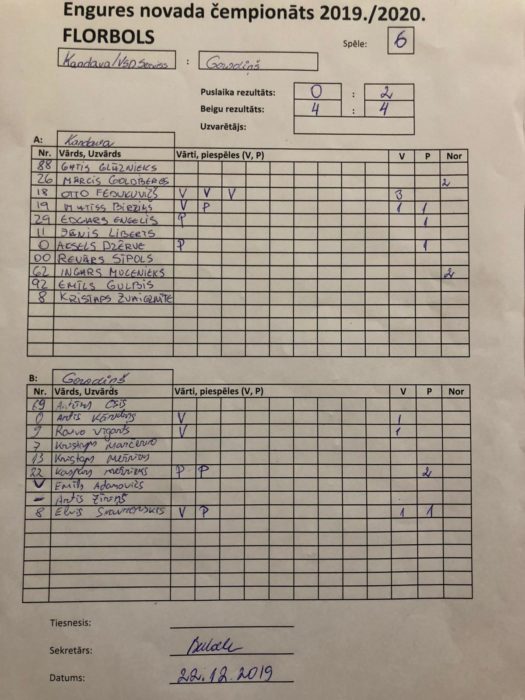 Engures novada čempionāts 2019./2020.
FLORBOLS
Spēle: 6
Kandava/VSP Serviss : Goradiņš
Puslaika rezultāts: 0 : 2
Beigu rezultāts: 4 : 4
Uzvarētājs:
A: Kandava
Nr. Vārds, Uzvārds Vārti, piespēles (V, P) V P Nor
88 GATIS GLŪZNIEKS
26 MARCIS GOLDBERGS 2
18 OTTO V V V 3
19 MATĪSS BIRZIŅŠ V P 1 1
29 EDGARS ENGELIS P 1
11 JĀNIS LIBERTS
0 AKSELS DZĒRVE P 1
00 REVARS SĪPOLS
62 INGARS MUCENIEKS 2
92 EMĪLS GULBIS
8 KRISTAPS
B: Goradiņš
Nr. Vārds, Uzvārds Vārti, piespēles (V, P) V P Nor
69 Osis
0 Artis V 1
9 Raivo Vīgants V 1
7 Kristaps
13 Kristaps
22 Kaspars P P 2
V Emīls Adamovičs
– Artis
8 Elvis V P 1 1
Tiesnesis:
Sekretārs:
Datums: 22.12.2019